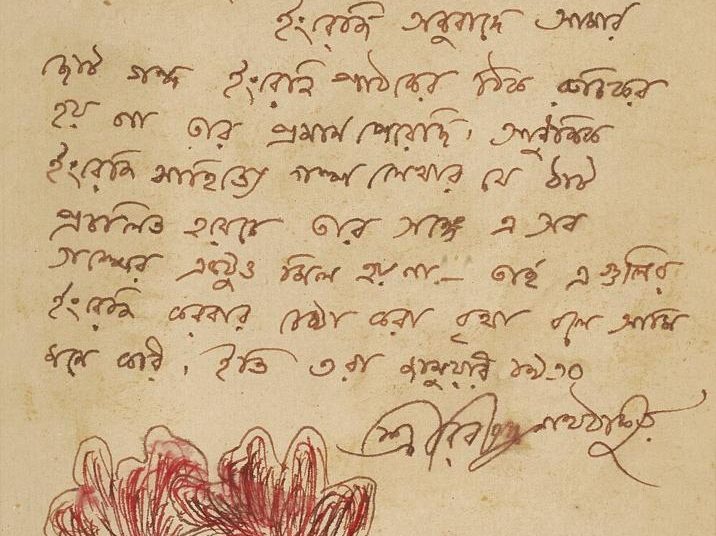 ইংরেজি অনুবাদে আমার
ছোট গল্প ইংরেজি পাঠকের ঠিক রুচিকর
হয় না তার প্রমাণ পেয়েছি। আধুনিক
ইংরেজি সাহিত্যে গল্প লেখার যে ঠাট
প্রচলিত হয়েছে তার সঙ্গে এ সব
গল্পের একটুও মিল হয় না— তাই এগুলির
ইংরেজি করবার চেষ্টা করা বৃথা বলে আমি
মনে করি। ইতি ৩রা জানুয়ারি
শ্রীরবীন্দ্রনাথঠাকুর